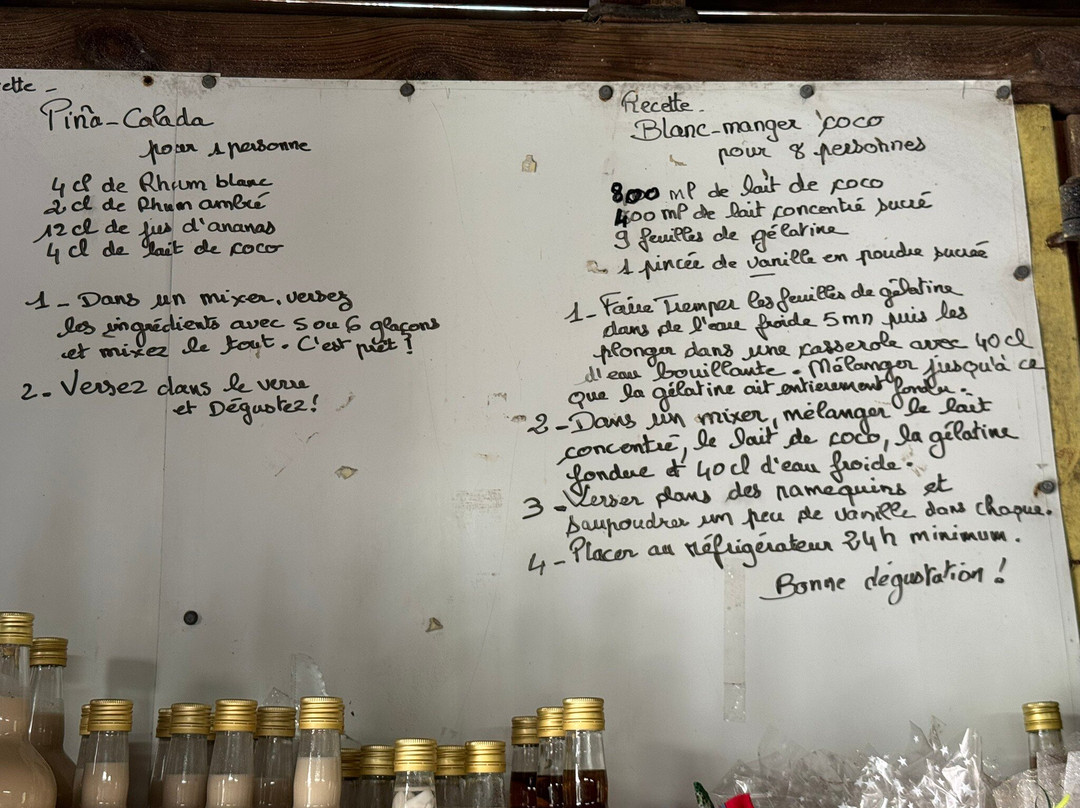 ette -
Pinã-Colada
pour 1 personne
4 cl de Rhum blanc
2 cl de Rhum ambré
12 cl de jus d'ananas
4 cl de lait de coco
1 - Dans un mixer, versez
les ingrédients avec 5 ou 6 glaçons
et mixez le tout. C'est prêt !
2 - Versez dans le verre
et Dégustez !
Recette.
Blanc-manger coco
pour 8 personnes
800 ml de lait de coco
400 ml de lait concentré sucré
9 feuilles de gélatine
1 pincée de vanille en poudre sucrée
1 - Faire Tremper les feuilles de gélatine
dans de l'eau froide 5 mn puis les
plonger dans une casserole avec 40 cl
d'eau bouillante. Mélanger jusqu'à ce
que la gélatine ait entièrement fondu.
2 - Dans un mixer, mélanger le lait
concentré, le lait de coco, la gélatine
fondue et 40 cl d'eau froide.
3 - Verser dans des ramequins et
saupoudrer un peu de vanille dans chaque.
4 - Placer au réfrigérateur 24h minimum.
Bonne dégustation !